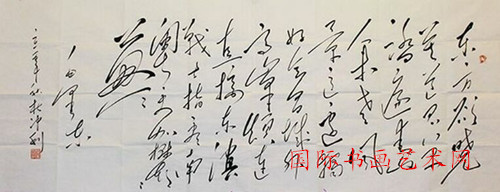 东方欲晓
莫道君行早
踏遍青山
人未老风
景这边独
好会昌城外
高峰颠连
直接东溟
战士指看南
粤更加郁郁
葱葱
国际书画艺术院